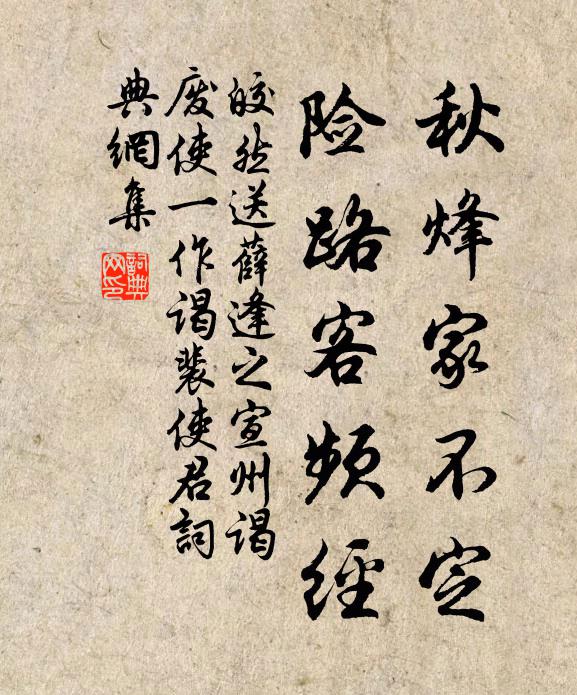 秋烽家不定
险路客频經
皎然送薛逢之宣州谒
废使一作谒裴使君詞
典網集
詞典
网印